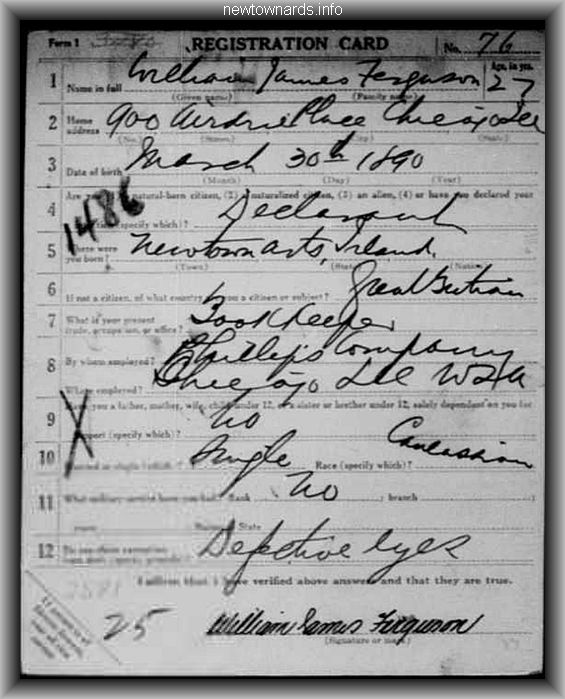 newtownards.info
Form 1 REGISTRATION CARD No. 76
1 Name in full William James Ferguson Age, in yrs. 27
(Given name) (Family name)
2 Home address 900 Airdrie Place Chicago Ill
(No.) (Street) (City) (State)
3 Date of birth March 30th 1890
(Month) (Day) (Year)
Are you a natural-born citizen, (2) a naturalized citizen, (3) an alien, (4) or have you declared your
4 (specify which)? Declarant
1486
5 Where were you born? Newtownards, Ireland.
(Town) (State) (Nation)
6 If not a citizen, of what country are you a citizen or subject? Great Britain
7 What is your present trade, occupation, or office? Bookkeeper
8 By whom employed? Phillips Company
Where employed? Chicago Ill USA
9 Have you a father, mother, wife, child under 12, or a sister or brother under 12, solely dependent on you for
support (specify which)? No
X
10 Married or single (which)? Single Race (specify which)? Caucasian
11 What military service have you had? Rank No ; branch
years Nation or State
12 Do you claim exemption from draft (specify grounds)? Defective eyes
I affirm that I have verified above answers and that they are true.
25 William James Ferguson
(Signature or mark)